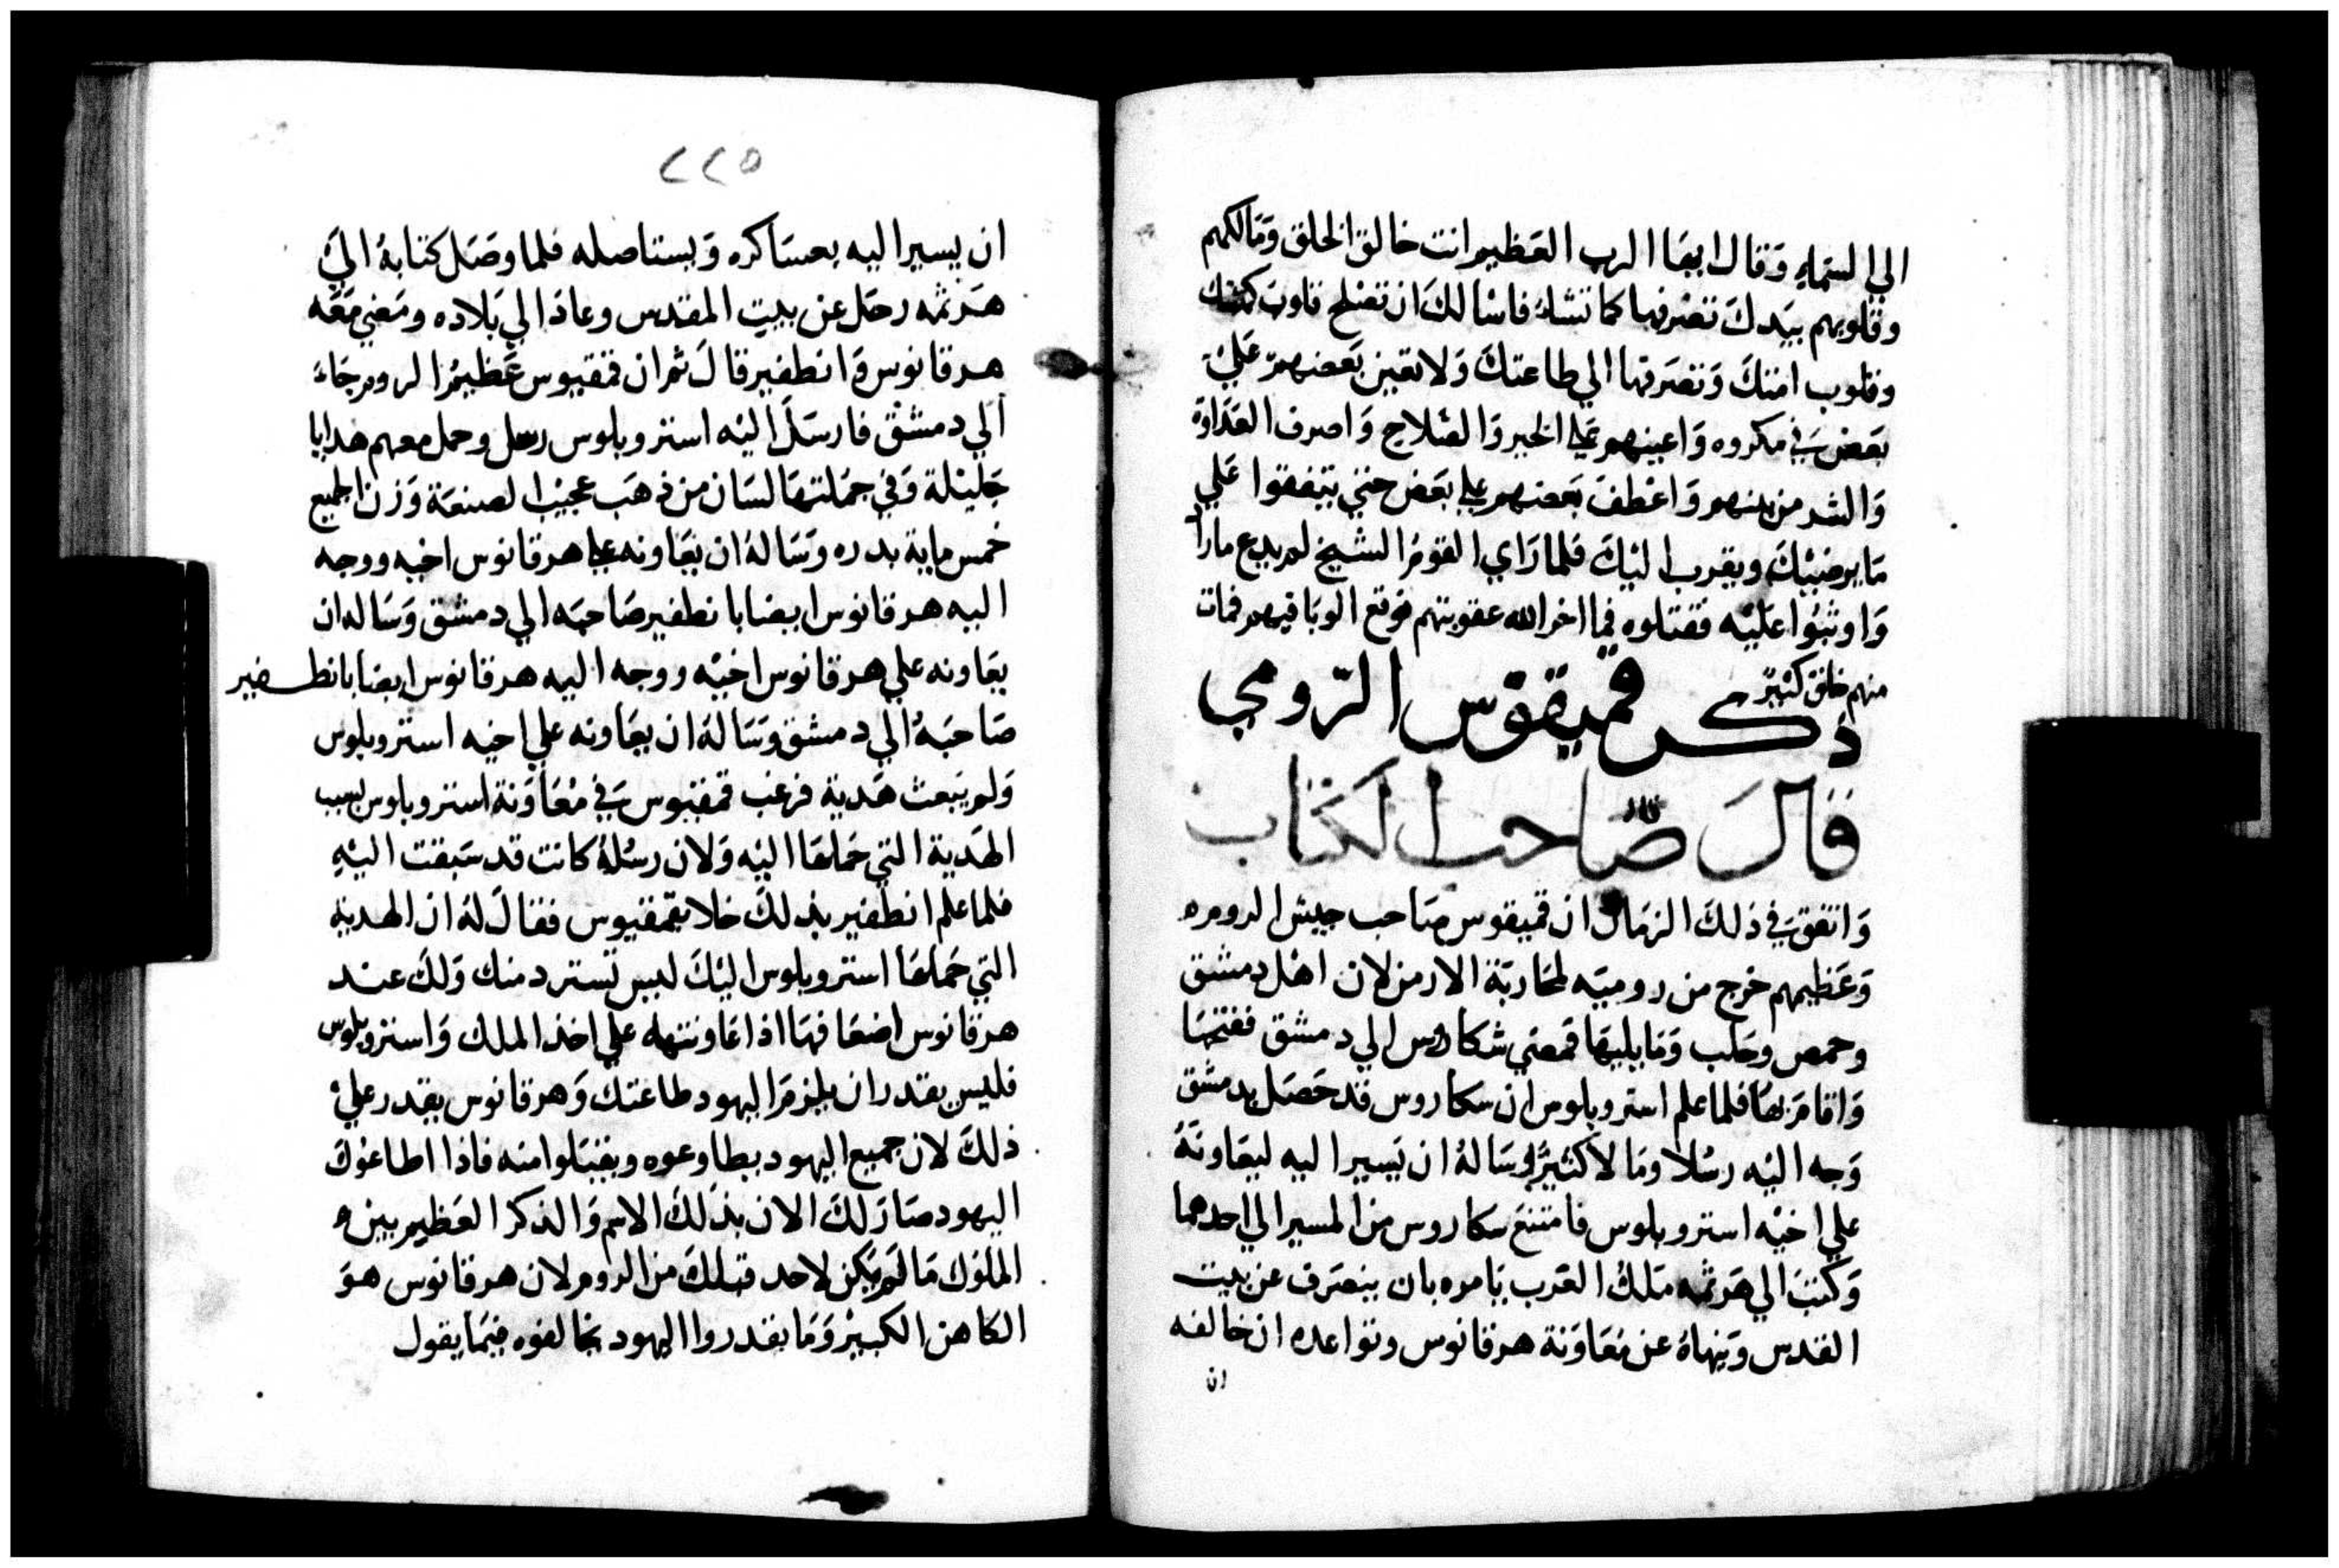 الى السماء وقال ايها الرب العظيم انت خالق الخلق ومالكهم
وقلوبهم بيدك تصرفها كما تشاء فاسالك ان تصلح قلوب كهنتك
وقلوب امتك وتصرفها الي طاعتك ولا تعين بعضهم علي
بعض في مكروه واعينهم علي الخير والصلاح واصرف العداوة
والشر من بينهم واعطف بعضهم علي بعض حتي يتفقوا علي
ما يرضيك ويقرب اليك فلما راي القوم الشيخ لم يدع مارا
واوثبوا عليه فقتلوه فما اخر الله عقوبتهم فوقع الوبا فيهم فمات
منهم خلق كثير
ذكر قميقوس الرومي
قال صاحب الكتاب
واتفق في ذلك الزمان ان قميقوس صاحب جيش الروم
وعظيمهم خرج من روميه لمحاربة الارمن لان اهل دمشق
وحمص وحلب وما يليها فمضي شكاروس الي دمشق ففتحها
واقام بها فلما علم استروبلوس ان سكاروس قد حصل بدمشق
وجه اليه رسلا ومالا كثيرا وساله ان يسير اليه ليعاونه
علي اخيه استروبلوس فامتنع سكاروس من المسير الي احدهما
وكتب الي هرثمه ملك العرب يامره بان ينصرف عن بيت
القدس وينهاه عن معاونة هرقانوس وتواعده ان خالفه
ان
٢٢٥
ان يسير اليه بعساكره ويستاصله فلما وصل كتابه الي
هرثمه رحل عن بيت المقدس وعاد الي بلاده ومضي معه
هرقانوس وانطفير قال ثم ان قمقيوس عظيم الروم جاء
الي دمشق فارسل اليه استروبلوس رسل وحمل معهم هدايا
جليلة وفي جملتها لسان من ذهب عجيب الصنعة وزن الجميع
خمس ماية بدره وساله ان يعاونه علي هرقانوس اخيه ووجه
اليه هرقانوس ايضا بانطفير صاحبه الي دمشق وساله ان
يعاونه علي هرقانوس اخيه ووجه اليه هرقانوس ايضا بانطفير
صاحبه الي دمشق وساله ان يعاونه علي اخيه استروبلوس
ولم يبعث هدية فرغب قمقيوس في معاونة استروبلوس بسبب
الهدية التي حملها اليه ولان رسله كانت قد سبقت اليه
فلما علم انطفير بذلك خلا بقمقيوس فقال له ان الهدية
التي حملها استروبلوس اليك ليس تسترد منك ولك عند
هرقانوس اضعافها اذا عاونته علي اخذ الملك واستروبلوس
فليس يقدر ان يلزم اليهود طاعتك وهرقانوس يقدر علي
ذلك لان جميع اليهود يطاوعوه ويقبلوا منه فاذا اطاعوك
اليهود صار لك الان بذلك الاسم والذكر العظيم بين
الملوك ما لم يكن لاحد قبلك من الروم لان هرقانوس هو
الكاهن الكبير وما يقدروا اليهود يخالفوه فيما يقول